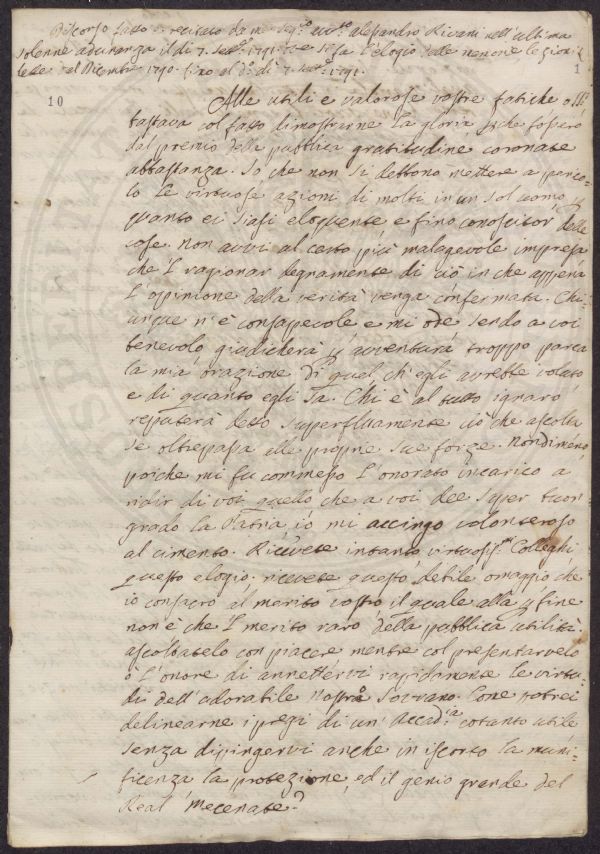 Discorso fatto e recitato da me Seg.º avv.º Alessandro Rivani nell'ultima
solenne adunanza il dì 7. Sett.e 1791. e si fa l'elogio delle memorie lezioni
lette dal Dicembre 1790. fino al dì 7. Sett.e 1791.
1
10
Alle utili e valorose vostre fatiche o Ill.i
bastava col fatto dimostrarne la gloria perche fossero
dal premio della pubblica gratitudine coronate
abbastanza. So che non si debbono mettere a perico-
lo le virtuose azioni di molti in un sol uomo
quanto ei siasi eloquente e fino conoscitor delle
cose. Non avvi al certo più malagevole impresa
che 'l ragionar degnamente di ciò in che appena
l'opinione della verità venga confermata. Chi-
unque n'è consapevole e mi ode sendo a voi
benevolo giudicherà p avventura troppo parca
la mia orazione di quel ch'egli avrebbe voluto
e di quanto egli sa. Chi è al tutto ignaro
reputerà detto superfluamente ciò che ascolta
se oltrepassa alle proprie sue forze. Nondimeno,
poiche mi fu commesso l'onorato incarico a
ridir di voi quello che a voi dee saper buon
grado la Patria, io mi accingo volonteroso
al cimento. Ricevete intanto virtuosiss.mi Colleghi
questo elogio, ricevete questo debile omaggio che
io consacro al merito vostro il quale alla p fine
non è che 'l merito raro della pubblica utilità
ascoltatelo con piacere mentre col presentarvelo
ò l'onore di annettervi rapidamente le virtu-
di dell'adorabile nostro Sovrano. Come potrei
delinearne i pregi di un'Accad.ia cotanto utile
senza dipingervi anche in iscorto la muni-
ficenza la protezione, ed il genio grande del
Real Mecenate?